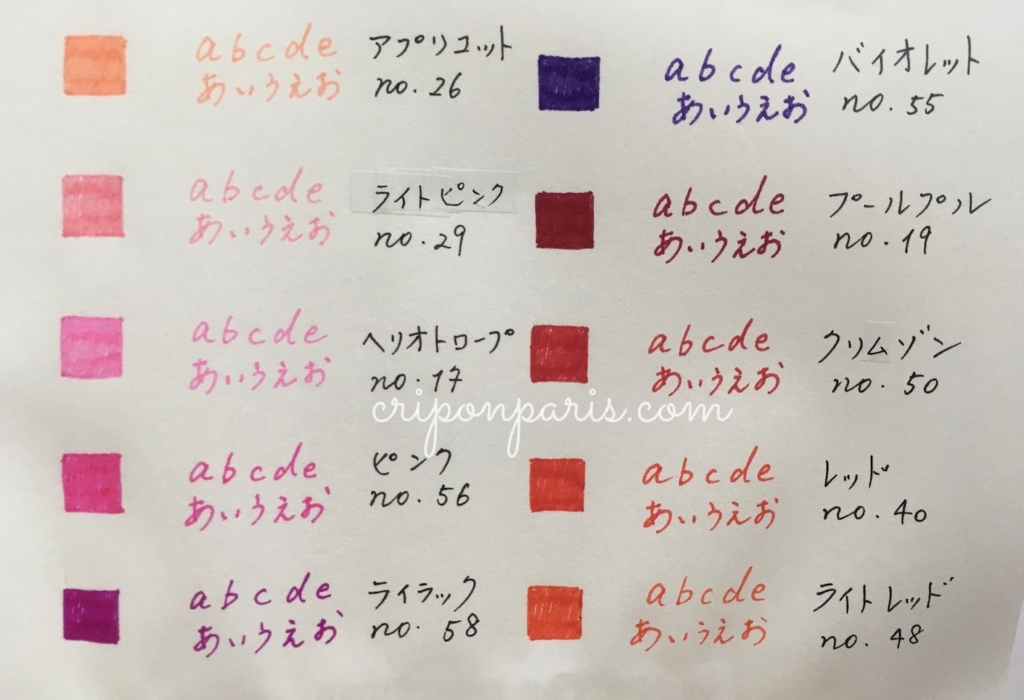 abcde アプリコット
あいうえお no. 26
abcde ライトピンク
あいうえお no. 29
abcde ヘリオトロープ
あいうえお no. 17
abcde ピンク
あいうえお no. 56
abcde ライラック
あいうえお no. 58
abcde バイオレット
あいうえお no. 55
abcde プールプル
あいうえお no. 19
abcde クリムゾン
あいうえお no. 50
abcde レッド
あいうえお no. 40
abcde ライトレッド
あいうえお no. 48
criponparis.com